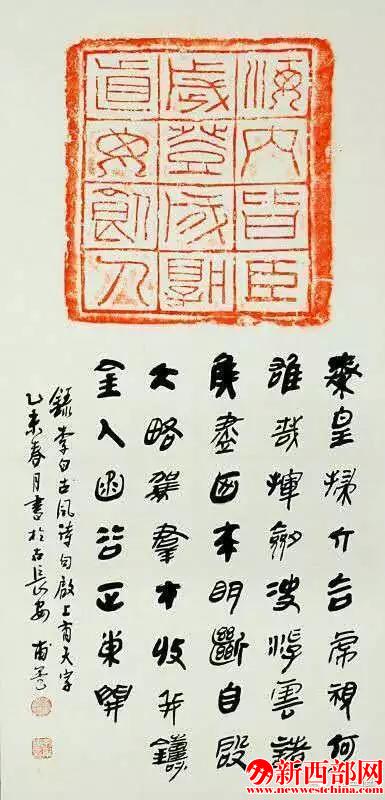 海内皆臣
歲登成孰
道毋飢人
秦皇掃六合虎視何
雄哉揮劍決浮雲諸
侯盡西来明斷自啟
大略駕羣才收兵鑄
金人函谷正東開
錄李白古風詩句啟上天字
乙未春月書於古長安
新西部网
www.newwestchina.com